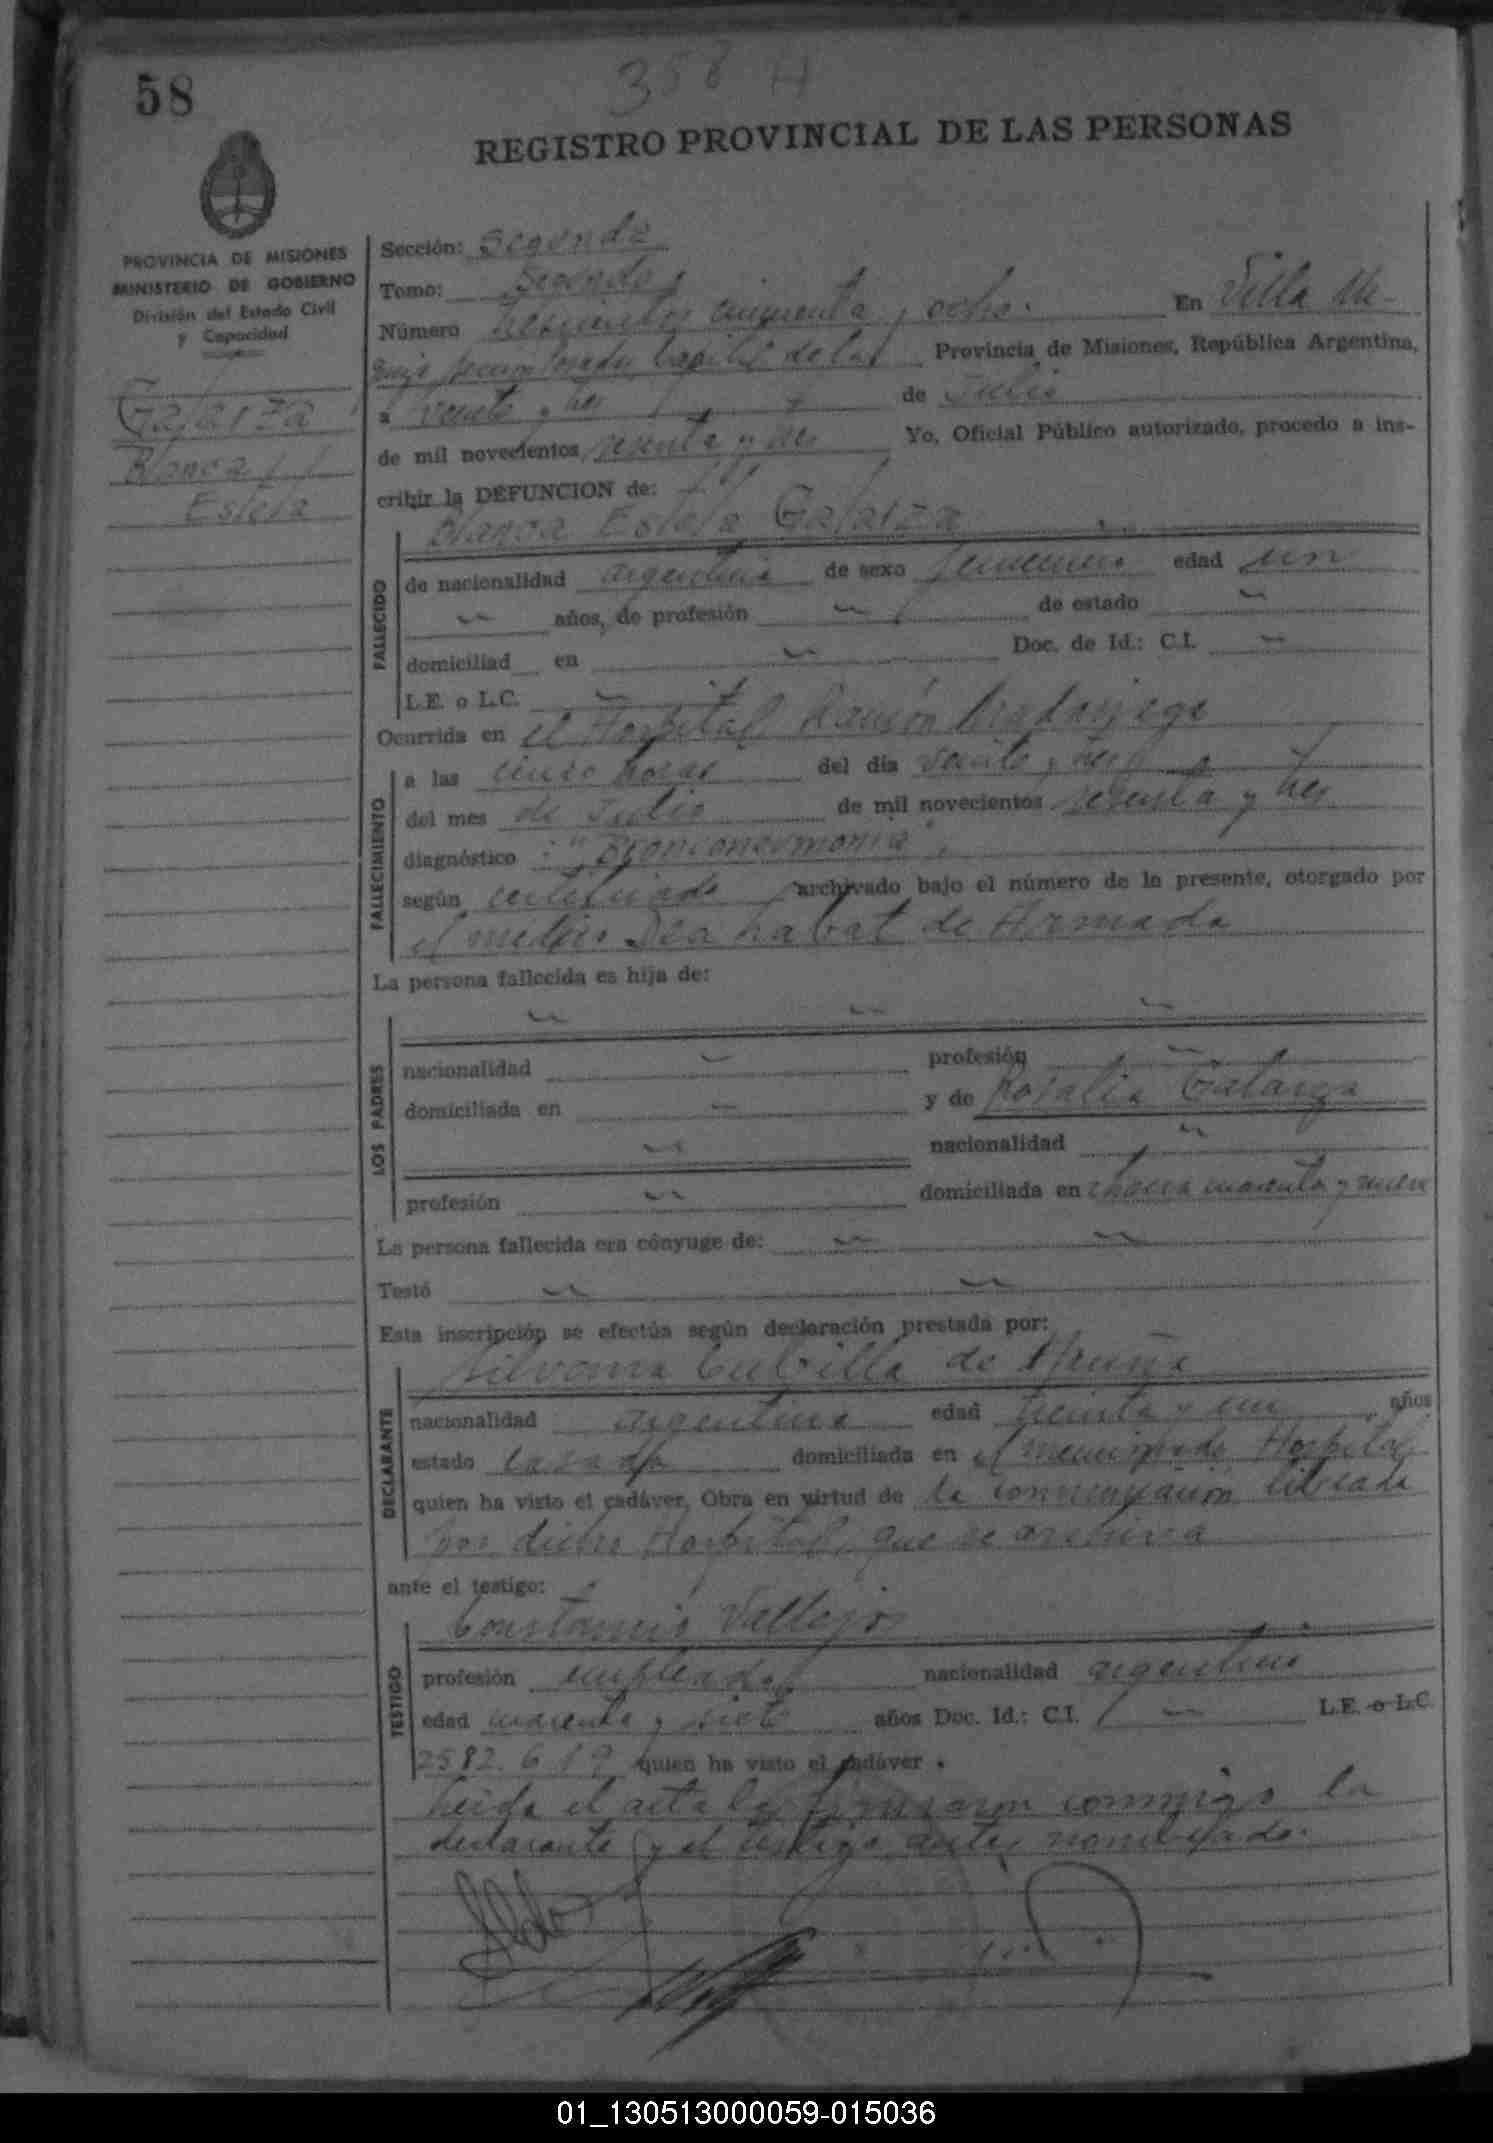 58
358 A
REGISTRO PROVINCIAL DE LAS PERSONAS
PROVINCIA DE MISIONES
MINISTERIO DE GOBIERNO
División del Estado Civil
y Capacidad
Galarza
Blanca
Estela
Sección: Segunda
Tomo: Segundo
Número trescientos cincuenta y ocho. En Villa
Capital de la Provincia de Misiones, República Argentina,
a veinte y tres de Julio
de mil novecientos sesenta y tres Yo, Oficial Público autorizado, procedo a ins-
cribir la DEFUNCION de:
Blanca Estela Galarza
FALLECIDO
de nacionalidad argentina de sexo femenino edad un
años, de profesión de estado
domiciliad en Doc. de Id.: C.I.
L.E. o L.C.
Ocurrida en el Hospital Ramón Madariaga
FALLECIMIENTO
a las cinco horas del día veinte y tres
del mes de Julio de mil novecientos sesenta y tres
diagnóstico : "Bronconeumonia"
según certificado archivado bajo el número de la presente, otorgado por
el médico de Armada
La persona fallecida es hija de:
LOS PADRES
nacionalidad profesión
domiciliada en y de Rosalia Galarza
nacionalidad
profesión domiciliada en chacra cuarenta y nueve
La persona fallecida era cónyuge de:
Testó
Esta inscripción se efectúa según declaración prestada por:
Silvania Cubilla de
DECLARANTE
nacionalidad argentina edad treinta y un años
estado casada domiciliada en el mencionado Hospital
quien ha visto el cadáver, Obra en virtud de la comunicación librada
por dicho Hospital, que se archiva
ante el testigo:
Constancio Vallejos
TESTIGO
profesión empleado nacionalidad argentino
edad cuarenta y siete años Doc. Id.: C.I. L.E. o L.C.
2582.619 quien ha visto el cadáver.
Leida el acta la firmaron conmigo la
declarante y el testigo antes nombrado.
01_130513000059-015036